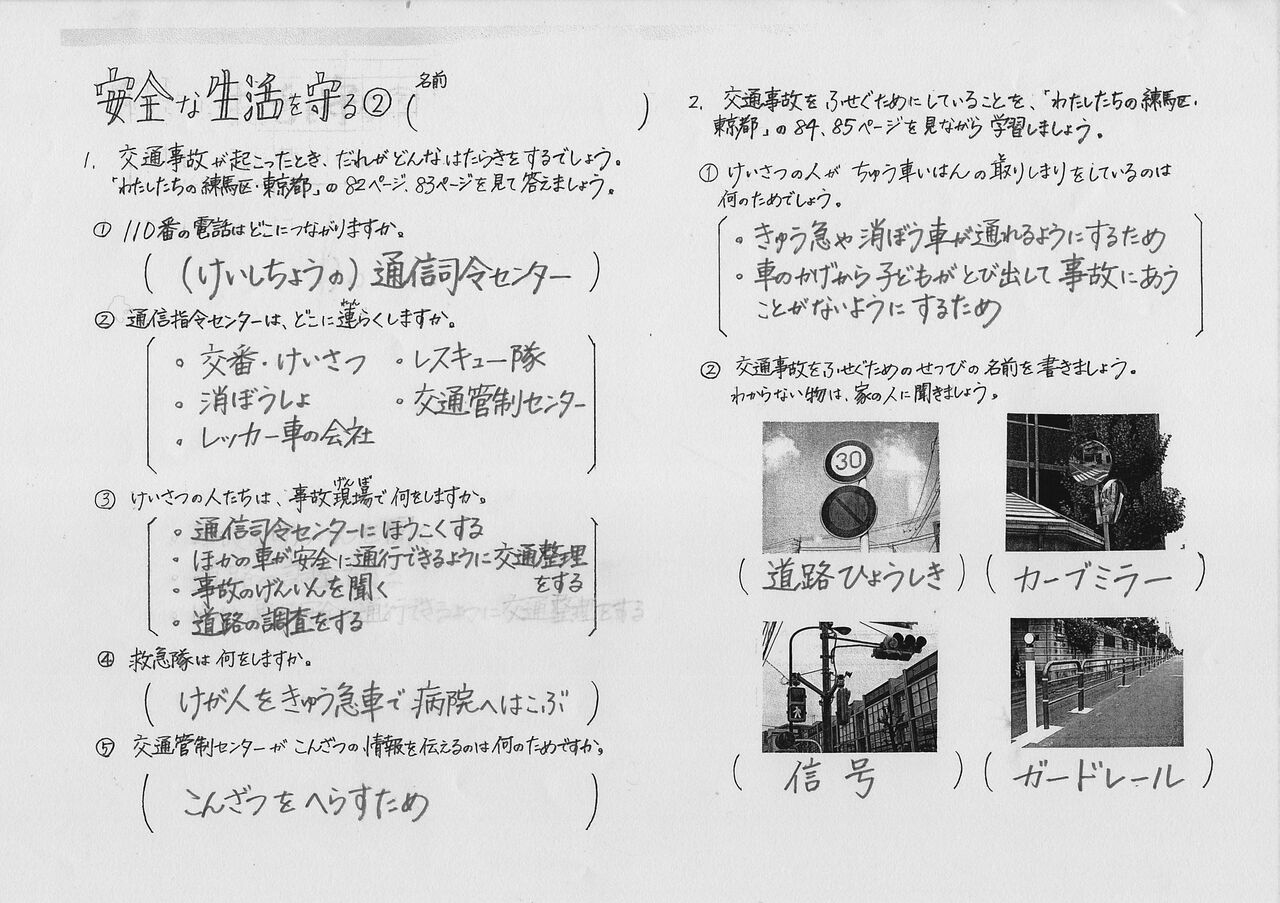 安全な生活を守る② (名前 )
1. 交通事故が起こったとき、だれがどんなはたらきをするでしょう。
「わたしたちの練馬区・東京都」の82ページ、83ページを見て答えましょう。
① 110番の電話はどこにつながりますか。
( (けいしちょうの) 通信司令センター )
② 通信指令センターは、どこに連らくしますか。
れん
・交番・けいさつ ・レスキュー隊
・消ぼうしょ ・交通管制センター
・レッカー車の会社
③ けいさつの人たちは、事故現場で何をしますか。
げんば
・通信司令センターにほうこくする
・ほかの車が安全に通行できるように交通整理
をする
・事故のげんいんを聞く
・道路の調査をする
④ 救急隊は何をしますか。
( けが人をきゅう急車で病院へはこぶ )
⑤ 交通管制センターがこんざつの情報を伝えるのは何のためですか。
( こんざつをへらすため )
2. 交通事故をふせぐためにしていることを、「わたしたちの練馬区・
東京都」の84、85ページを見ながら学習しましょう。
① けいさつの人がちゅう車いはんの取りしまりをしているのは
と
何のためでしょう。
・きゅう急や消ぼう車が通れるようにするため
・車のかげから子どもがとび出して事故にあう
ことがないようにするため
② 交通事故をふせぐためのせつびの名前を書きましょう。
わからない物は、家の人に聞きましょう。
30
( 道路ひょうしき ) ( カーブミラー )
( 信号 ) ( ガードレール )